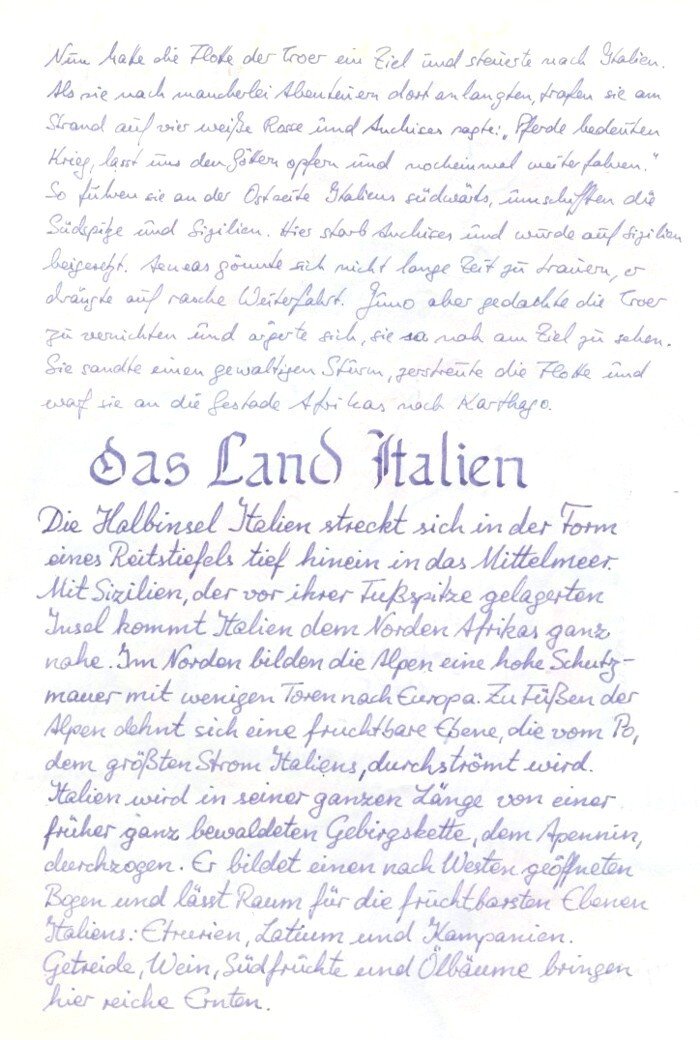 Nun hatte die Flotte der Troer ein Ziel und steuerte nach Italien.
Als sie nach mancherlei Abenteuern dort anlangten, trafen sie am
Strand auf vier weiße Rosse und Anchises sagte: „Pferde bedeuten
Krieg, lasst uns den Göttern opfern und nocheinmal weiterfahren.“
So fuhren sie an der Ostseite Italiens südwärts, umschifften die
Südspitze und Sizilien. Hier starb Anchises und wurde auf Sizilien
beigesetzt. Aeneas gönnte sich nicht lange Zeit zu trauern, er
drängte auf rasche Weiterfahrt. Juno aber gedachte die Troer
zu vernichten und ärgerte sich, sie so nah am Ziel zu sehen.
Sie sandte einen gewaltigen Sturm, zerstreute die Flotte und
warf sie an die Gestade Afrikas nach Karthago.
das Land Italien
Die Halbinsel Italien streckt sich in der Form
eines Reitstiefels tief hinein in das Mittelmeer.
Mit Sizilien, der vor ihrer Fußspitze gelagerten
Insel kommt Italien dem Norden Afrikas ganz
nahe. Im Norden bilden die Alpen eine hohe Schutz-
mauer mit wenigen Toren nach Europa. Zu Füßen der
Alpen dehnt sich eine fruchtbare Ebene, die vom Po,
dem größten Strom Italiens, durchströmt wird.
Italien wird in seiner ganzen Länge von einer
früher ganz bewaldeten Gebirgskette, dem Apennin,
durchzogen. Er bildet einen nach Westen geöffneten
Bogen und lässt Raum für die fruchtbarsten Ebenen
Italiens: Etrurien, Latium und Kampanien.
Getreide, Wein, Südfrüchte und Ölbäume bringen
hier reiche Ernten.